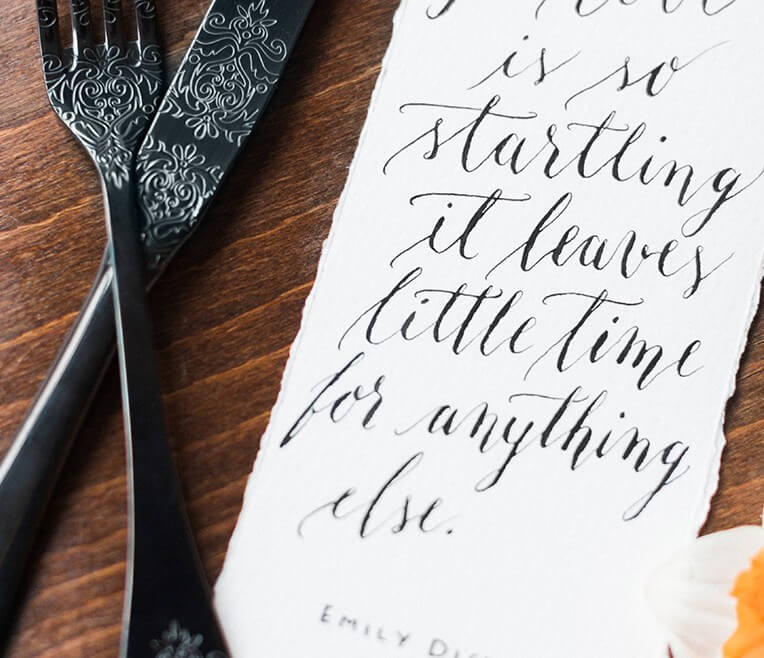 is so
startling
it leaves
little time
for anything
else.
EMILY